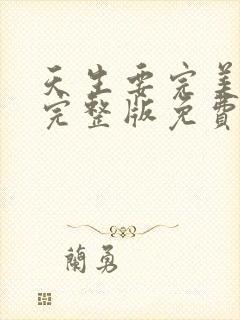 天生要完美
完整版免費
蘭勇